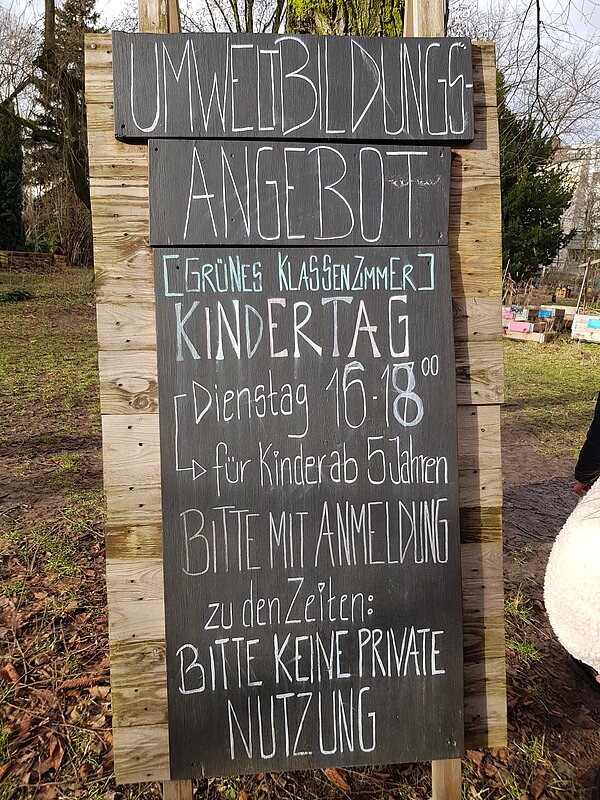 UMWELTBILDUNGS-
ANGEBOT
[GRÜNES KLASSENZIMMER]
KINDERTAG
Dienstag 16-18 00
für Kinder ab 5 Jahren
BITTE MIT ANMELDUNG
zu den Zeiten:
BITTE KEINE PRIVATE
NUTZUNG